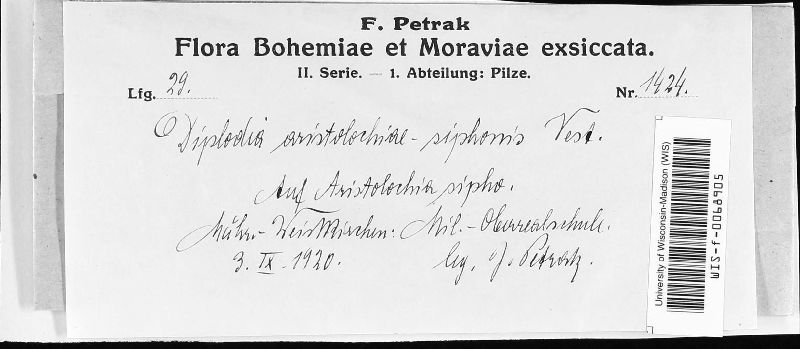 F. Petrak
Flora Bohemiae et Moraviae exsiccata.
II. Serie. — 1. Abteilung: Pilze.
Lfg. 29. Nr. 1424.
Diplodia aristolochiae-siphonis Vest.
Auf Aristolochia sipho.
Mähr.-Weisskirchen: Mil.-Oberrealschule.
3. IX. 1920. leg. J. Petrak.
University of Wisconsin-Madison (WIS)
WIS-f-0068905